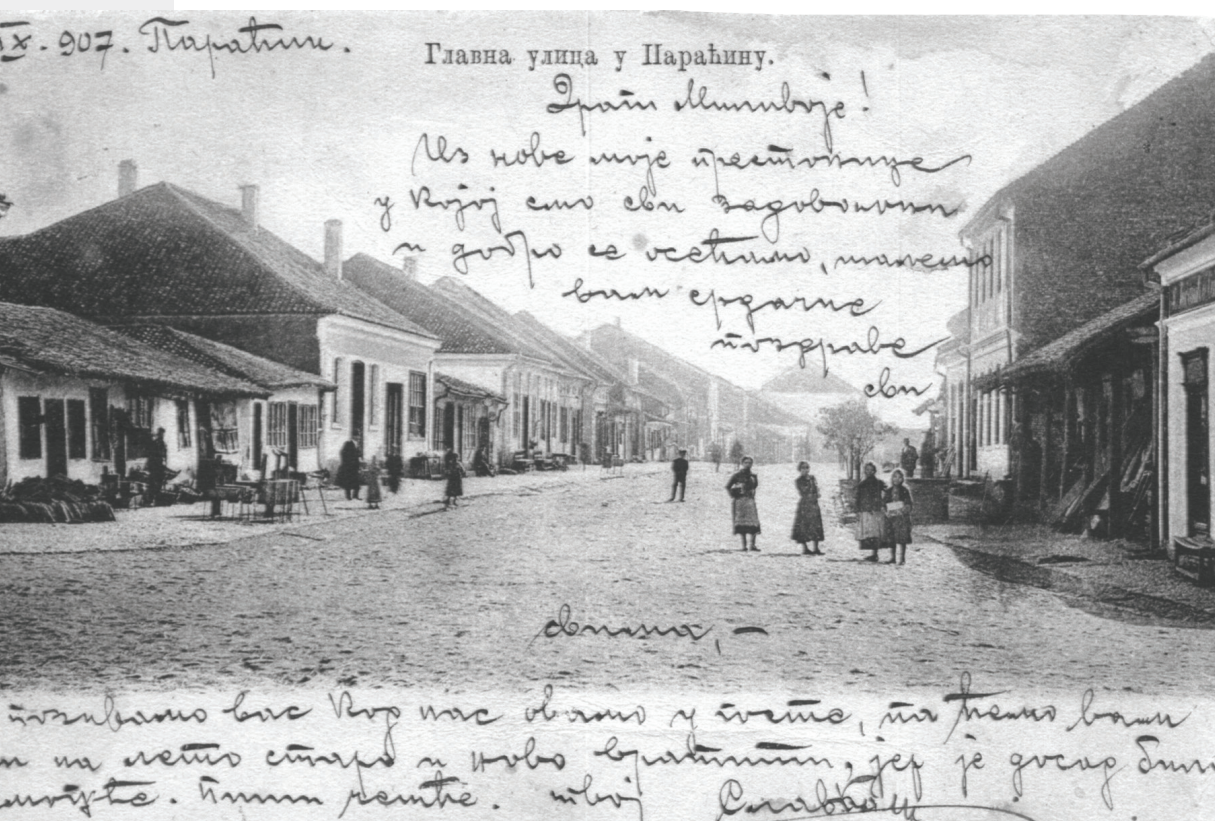 IX. 907. Параћин.
Главна улица у Параћину.
Драги Миливоје!
Из нове моје престонице
у којој смо сви задовољни
и добро се осећамо, шаљемо
вам срдачне
поздраве
сви
свима, —
позивамо вас код нас овамо у госте, па ћемо вам
и на лето старо и ново вратити, јер је досад било
могуће. Пиши чешће. твој Славко